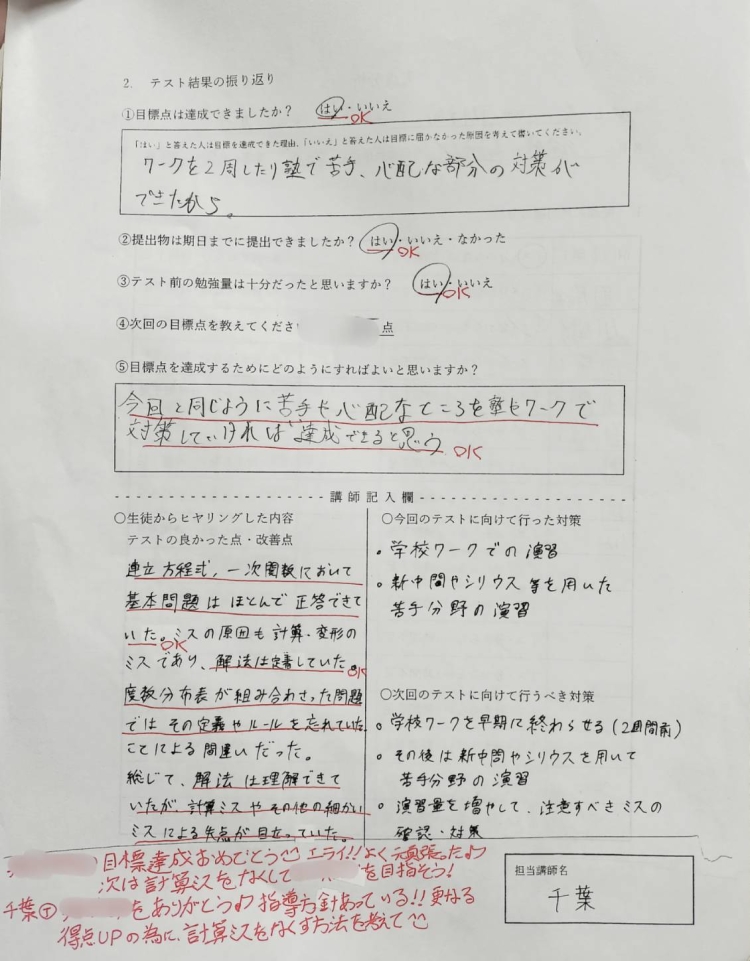 2. テスト結果の振り返り
①目標点は達成できましたか? はい・いいえ
OK
「はい」と答えた人は目標を達成できた理由、「いいえ」と答えた人は目標に届かなかった原因を考えて書いてください。
ワークを2周したり塾で苦手、心配な部分の対策が
できたから。
②提出物は期日までに提出できましたか? はい・いいえ・なかった
OK
③テスト前の勉強量は十分だったと思いますか? はい・いいえ
OK
④次回の目標点を教えてくださ 点
⑤目標点を達成するためにどのようにすればよいと思いますか?
今回と同じように苦手や心配なところを塾やワークで
対策していければ達成できると思う
OK
講師記入欄
○生徒からヒヤリングした内容
テストの良かった点・改善点
連立方程式、一次関数において
基本問題はほとんど正答できて
いた。ミスの原因も計算・変形の
OK
ミスであり、解法は定着していた。
OK
度数分布表が組み合わさった問題
ではその定義やルールを忘れていた
ことによる間違いだった。
総じて、解法は理解できて
いたが、計算ミスやその他の細かい
ミスによる失点が目立っていた。
○今回のテストに向けて行った対策
• 学校ワークでの演習
• 新中問やシリウス等を用いた
苦手分野の演習
○次回のテストに向けて行うべき対策
• 学校ワークを早期に終わらせる(2週間前)
• その後は新中問やシリウスを用いて
苦手分野の演習
• 演習量を増やして、注意すべきミスの
確認・対策
目標達成おめでとう エライ!!よく頑張った♪
次は計算ミスをなくして を目指そう!
千葉T をありがとう♪指導方針あっている!!更なる
得点UPの為に、計算ミスをなくす方法を考えて
担当講師名
千葉